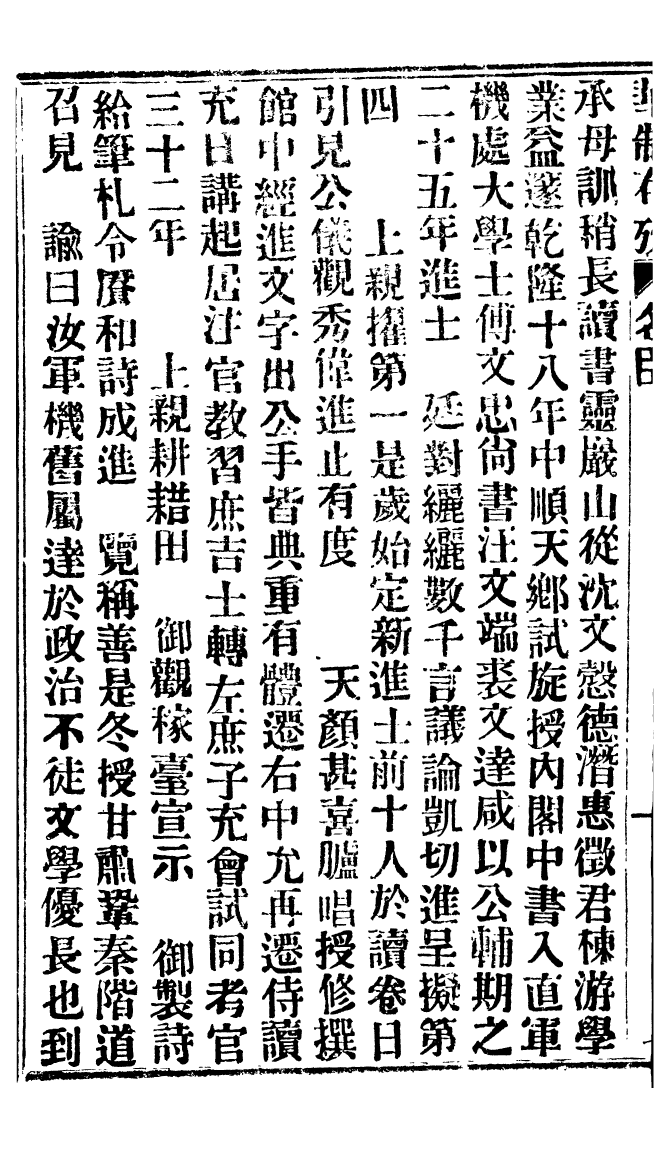 承母訓稍長讀書靈巖山從沈文慤德潛惠徵君棟游學
業益邃乾隆十八年中順天鄉試旋授內閣中書入直軍
機處大學士傅文忠尙書汪文端裘文達咸以公輔期之
二十五年進士 廷對纚纚數千言議論凱切進呈擬第
四 上親擢第一是歲始定新進士前十人於讀卷日
引見公儀觀秀偉進止有度 天顏甚喜臚唱授修撰
館中經進文字出公手皆典重有體遷右中允再遷侍讀
充日講起居注官教習庶吉士轉左庶子充會試同考官
三十二年 上親耕耤田 御觀稼臺宣示 御製詩
給筆札令賡和詩成進 覽稱善是冬授甘肅鞏秦階道
召見 諭曰汝軍機舊屬達於政治不徒文學優長也到